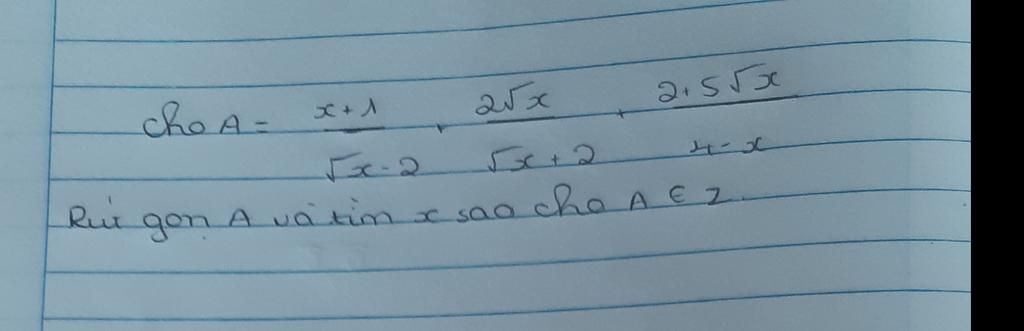 Cho A = x+1/√x-2 + 2√x/√x+2 + 2+5√x/4-x
Rút gọn A và tìm x sao cho A ∈ Z.